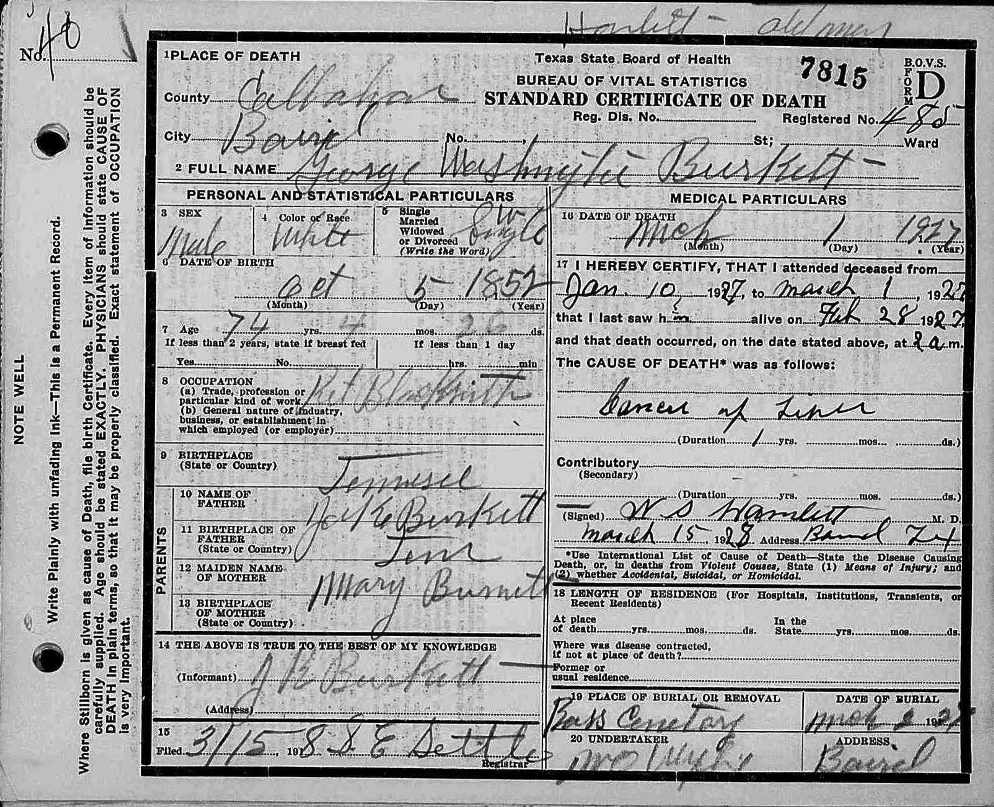 No. 40
1 PLACE OF DEATH
Texas State Board of Health
BUREAU OF VITAL STATISTICS
STANDARD CERTIFICATE OF DEATH
7815
B.O.V.S.
FORM D
County Callahan
Reg. Dis. No.
Registered No. 485
City Baird No. St; Ward
2 FULL NAME George Washington Burkett
PERSONAL AND STATISTICAL PARTICULARS
3 SEX Male
4 Color or Race White
5 Single Married Widowed or Divorced (Write the Word) Single
6 DATE OF BIRTH
Oct 5 1852
(Month) (Day) (Year)
7 Age 74 yrs. 4 mos. 26 ds.
If less than 2 years, state if breast fed If less than 1 day
Yes No. hrs. min
8 OCCUPATION
(a) Trade, profession or
particular kind of work Ret Blacksmith
(b) General nature of industry,
business, or establishment in
which employed (or employer)
9 BIRTHPLACE
(State or Country) Tennessee
PARENTS
10 NAME OF
FATHER Burkett
11 BIRTHPLACE OF
FATHER Tenn
(State or Country)
12 MAIDEN NAME
OF MOTHER Mary Burnett
13 BIRTHPLACE
OF MOTHER
(State or Country)
14 THE ABOVE IS TRUE TO THE BEST OF MY KNOWLEDGE
(Informant) Burkett
(Address)
15
Filed 3/15 191 8 S E Settle
Registrar
MEDICAL PARTICULARS
16 DATE OF DEATH
Mch 1 1927
(Month) (Day) (Year)
17 I HEREBY CERTIFY, THAT I attended deceased from
Jan. 10, 1927, to March 1, 1927
that I last saw him alive on Feb 28 1927
and that death occurred, on the date stated above, at 2 a.m.
The CAUSE OF DEATH* was as follows:
Cancer of Liver
(Duration 1 yrs. mos. ds.)
Contributory
(Secondary)
(Duration yrs. mos. ds.)
(Signed) W S Hamlett M. D.
March 15 1928 Address Baird Tx
*Use International List of Cause of Death—State the Disease Causing
Death, or, in deaths from Violent Causes, State (1) Means of Injury; and
(2) whether Accidental, Suicidal, or Homicidal.
18 LENGTH OF RESIDENCE (For Hospitals, Institutions, Transients, or
Recent Residents)
At place In the
of death yrs. mos. ds. State yrs. mos. ds.
Where was disease contracted,
if not at place of death?
Former or
usual residence
19 PLACE OF BURIAL OR REMOVAL DATE OF BURIAL
Cemetary Mch 2 192
20 UNDERTAKER ADDRESS
Baird
NOTE WELL
Write Plainly with unfading Ink—This is a Permanent Record.
Where Stillborn is given as cause of Death, file birth Certificate. Every item of information should be
carefully supplied. Age should be stated EXACTLY. PHYSICIANS should state CAUSE OF
DEATH in plain terms, so that it may be properly classified. Exact statement of OCCUPATION
is very important.